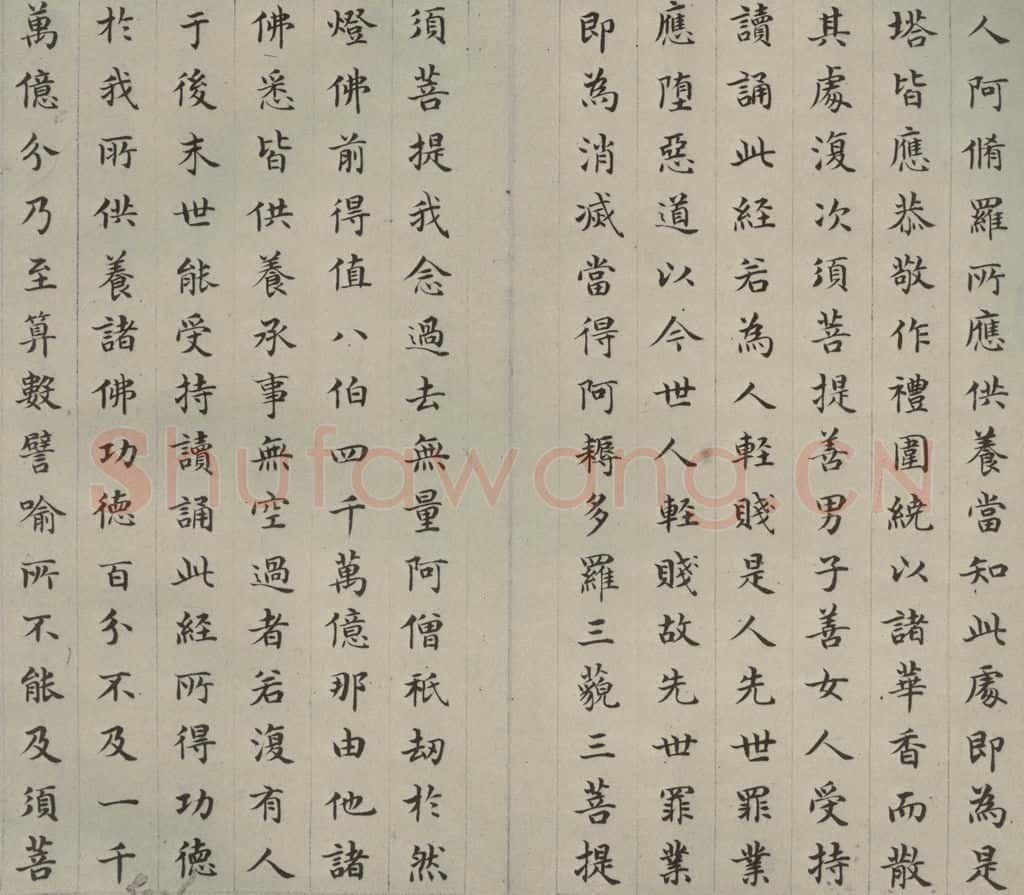 人阿脩羅所應供養當知此處即為是
塔皆應恭敬作禮圍繞以諸華香而散
其處復次須菩提善男子善女人受持
讀誦此經若為人輕賤是人先世罪業
應墮惡道以今世人輕賤故先世罪業
即為消滅當得阿耨多羅三藐三菩提
須菩提我念過去無量阿僧祇劫於然
燈佛前得值八伯四千萬億那由他諸
佛悉皆供養承事無空過者若復有人
于後末世能受持讀誦此經所得功德
於我所供養諸佛功德百分不及一千
萬億分乃至算數譬喻所不能及須菩
Shufawang.CN